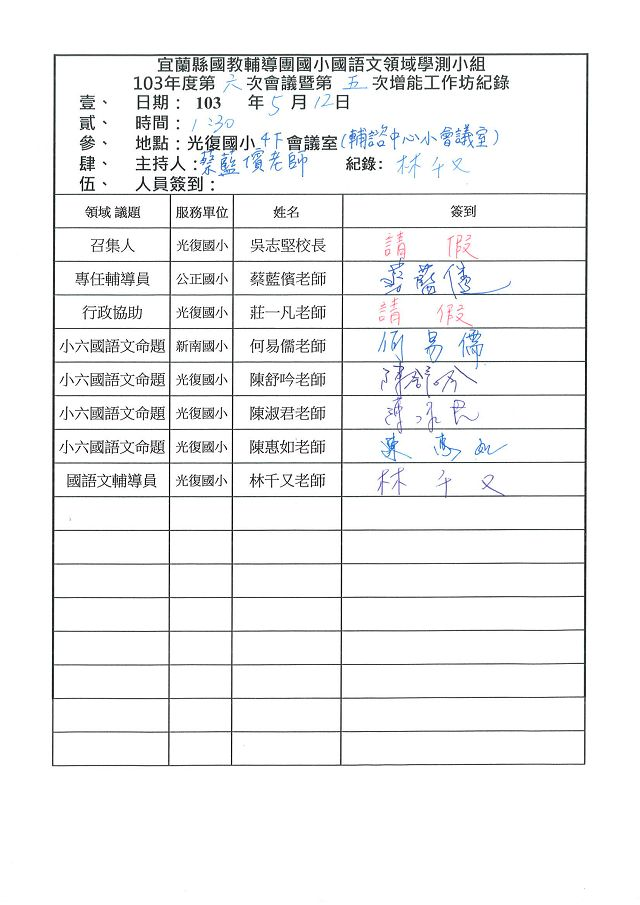 宜蘭縣國教輔導團國小國語文領域學測小組
103年度第 六 次會議暨第 五 次增能工作坊紀錄
壹、 日期： 103 年 5 月 12 日
貳、 時間： 1:30
參、 地點：光復國小 4F 會議室(輔諮中心小會議室)
肆、 主持人：蔡藍儐老師 紀錄： 林千又
伍、 人員簽到：
領域 議題 服務單位 姓名 簽到
召集人 光復國小 吳志堅校長 請 假
專任輔導員 公正國小 蔡藍儐老師 蔡藍儐
行政協助 光復國小 莊一凡老師 請 假
小六國語文命題 新南國小 何易儒老師 何易儒
小六國語文命題 光復國小 陳舒吟老師 陳舒吟
小六國語文命題 光復國小 陳淑君老師 陳淑君
小六國語文命題 光復國小 陳惠如老師 陳惠如
國語文輔導員 光復國小 林千又老師 林千又